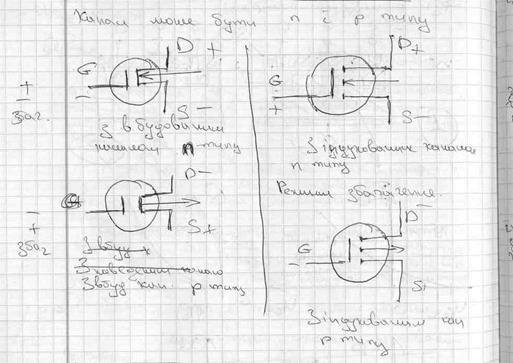 Канал може бути n і p типу
D +
G
−
S −
+
−
Збаг.
З вбудованим
каналом n-типу
D −
S +
−
+
Збаг
З вбуд к
З вбуд кан. p типу
D +
G
+
S −
З індукованим каналом
n типу
Режим збагачення.
D −
G
−
S
З індукованим кан
p типу